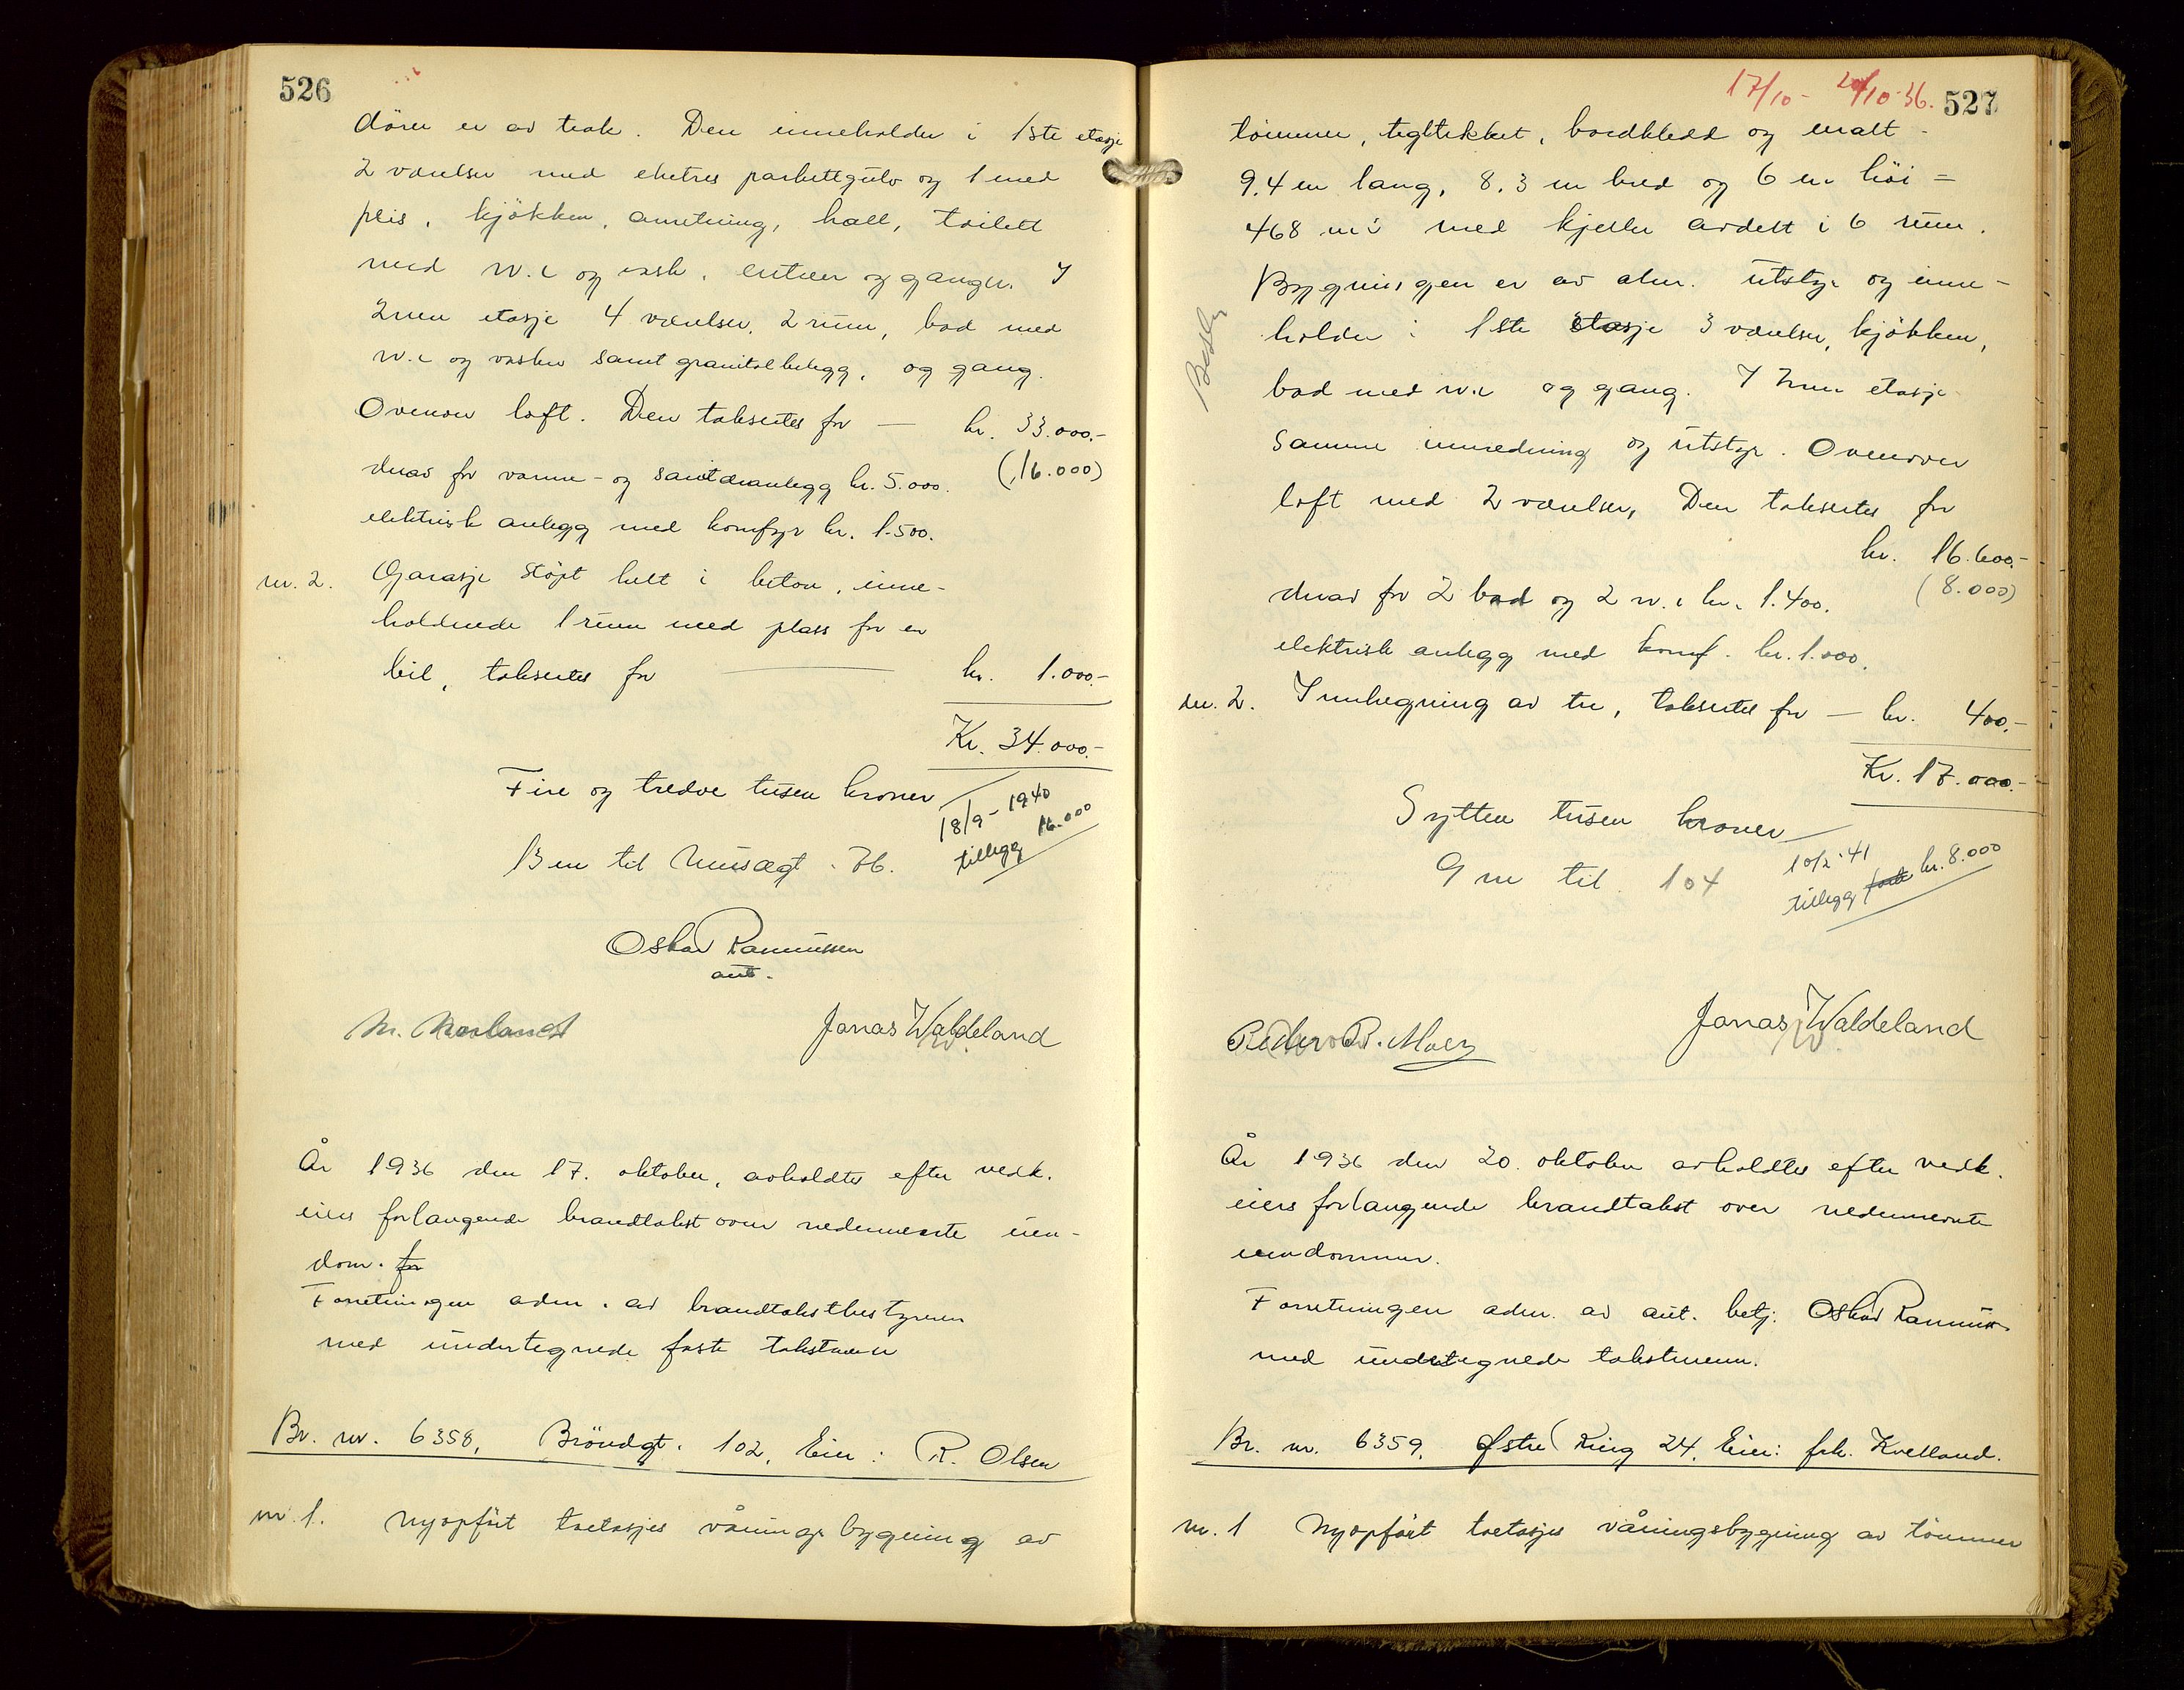 526
dören er av teak. Den inneholder i 1ste etasje
2 værelser med eketres parkettgulv og 1 med
peis, kjökken, anretning, hall, toilett
med w.c og vask, entree og ganger. I
2nen etasje 4 værelser, 2 rum, bad med
w.c og vasker samt granitolbelegg, og gang.
Ovenover loft. Den takseres for — kr. 33.000.-
(16.000)
derav for varme- og sanitæranlegg kr. 5.000.
elektrisk anlegg med komfyr kr. 1.500.
nr. 2. Garasje stöpt helt i beton, inne-
holdende 1 rum med plass for en
bil, takseres for — kr. 1.000.-
Kr. 34.000.-
Fire og tredve tusen kroner
18/9 - 1940
tillegg 16.000
13 m til 76.
Oskar Rasmussen
aut.
M. Norland
Jonas Waldeland
År 1936 den 17. oktober, avholdtes efter vedk.
eiers forlangende brandtakst over nedennevnte eien-
dom. for
Forretningen adm. av brandtakstbestyreren
med undertegnede faste takstmenn
Br. nr. 6358, Bröndgt. 102, Eier: R. Olsen
nr. 1. Nyopfört toetasjes våningsbygning av
17/10 - 20/10 36.
527
tömmer, tegltekket, bordkledd og malt -
9.4 m lang, 8.3 m bred og 6 m höi =
468 m³ med kjeller avdelt i 6 rum.
Bygningen er av alm. utstyr og inne-
holder i 1ste etasje 3 værelser, kjökken,
bad med w.c og gang. I 2nen etasje
samme innredning og utstyr. Ovenover
loft med 2 værelser, Den takseres for
kr. 16.600.-
(8.000)
derav for 2 bad og 2 w.c kr. 1.400.
elektrisk anlegg med komf. kr. 1.000.
nr. 2. Innhegning av tre, takseres for — kr. 400.-
Kr. 17.000.-
Sytten tusen kroner
10/2 - 41
tillegg kr. 8.000
9 m til 104
Jonas Waldeland
År 1936 den 20. oktober avholdtes efter vedk.
eiers forlangende brandtakst over nedennevnte
eiendommer.
Forretningen adm. av aut. betj. Oskar Rasmussen
med undertegnede takstmenn.
Br. nr. 6359, Østre Ring 24, Eier: frk. Kvelland.
nr. 1 Nyopfört toetasjes våningsbygning av tömmer